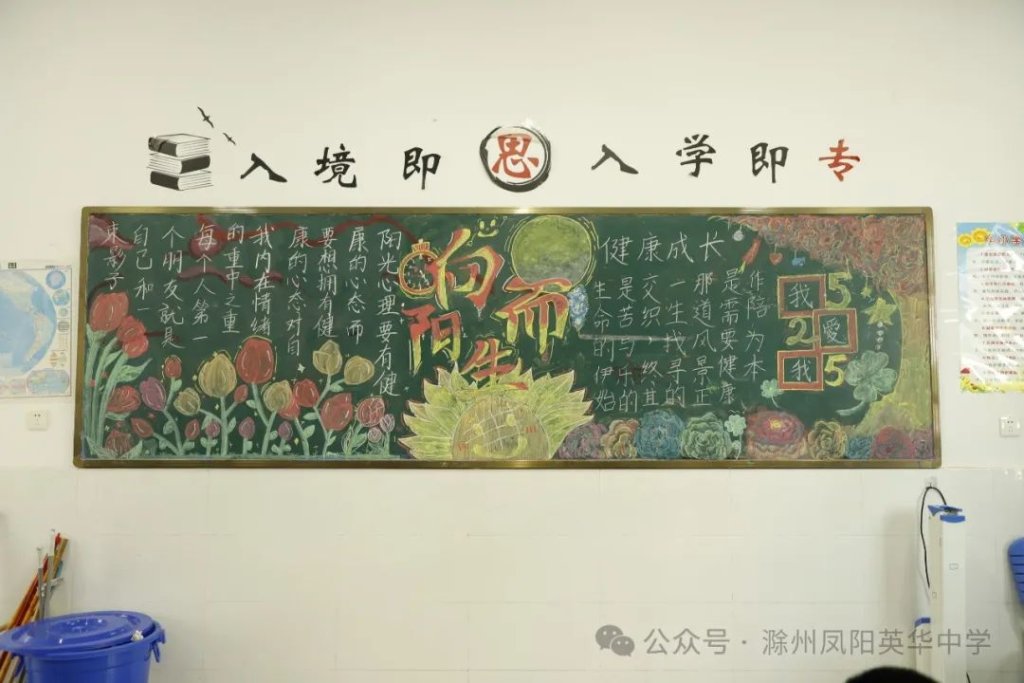 入境即思入学即专
向阳而生
阳光心理要有健
康的心态而
要想拥有健
康的心,对自
我内在情绪
的重中之重
每个人第一
个朋友就是
自己和一
束影子
健康成长
生命的伊始
是苦与乐的
交织,终其
一生找寻的
那道风景正
是需要健康
为本
我5
2愛
我5
公众号·滁州凤阳英华中学